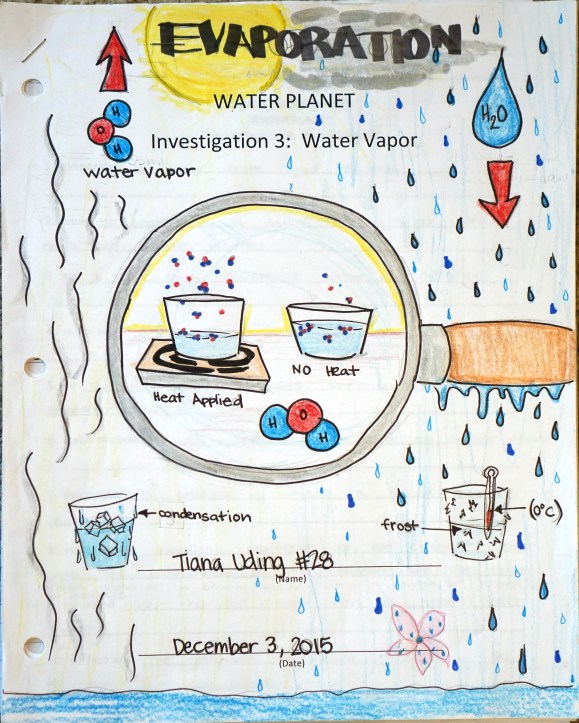 EVAPORATION
WATER PLANET
Investigation 3:  Water Vapor
H
O
H
water vapor
H₂O
Heat Applied
NO Heat
H
O
H
condensation
frost
(0°C)
Tiana Uding #28
(Name)
December 3, 2015
(Date)